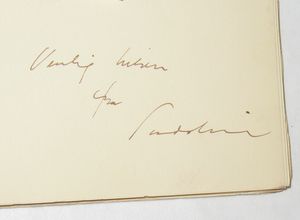 Venlig hilsen
fra